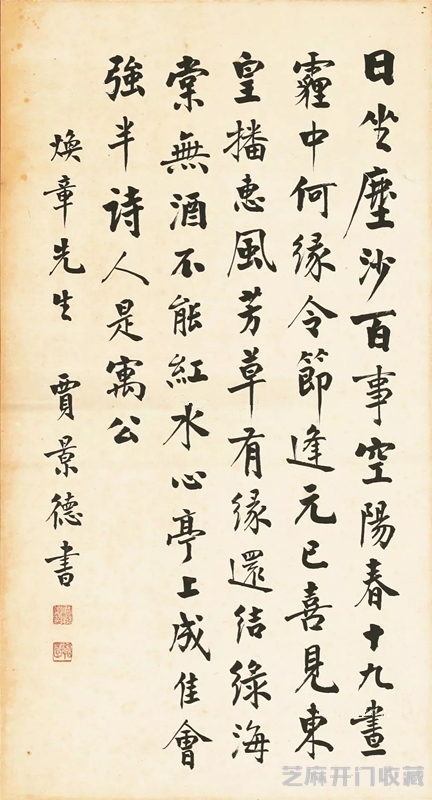 日坐塵沙百事空陽春十九晝
霾中何緣令節逢元巳喜見東
皇播惠風芳草有緣還結綠海
棠無酒不能紅水心亭上成佳會
強半詩人是寓公
煥章先生 賈景德書
芝麻开门收藏